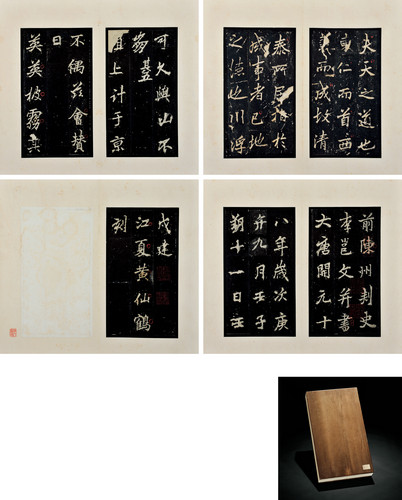 夫天之道也
東仁而首西
義而成故清
泰所居指於
成事者已地
之德也川浮
可久與山不
且上計于京
不偶茲會贊
曰
英英披霧
前陳州刺史
李邕文并書
大唐開元十
八年歲次庚
午九月壬子
朔十一日壬
戌建
江夏黃仙鶴
刻